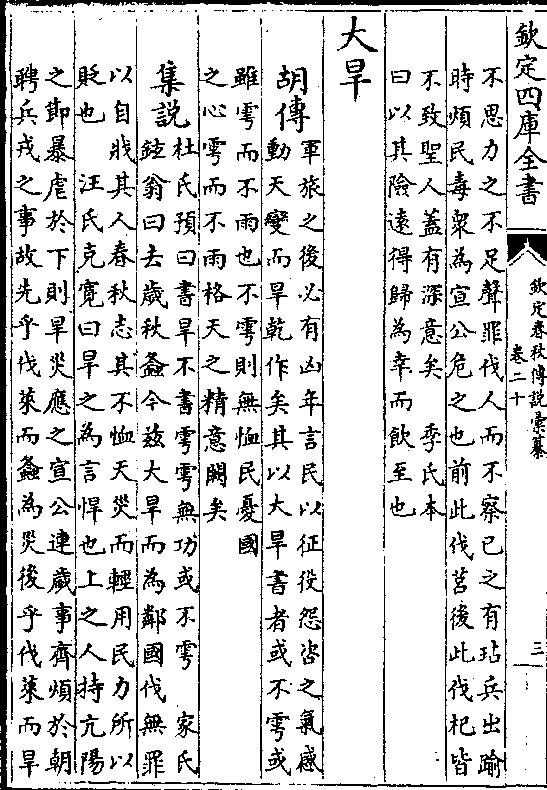 欽定四庫全書
欽定春秋傳說彙纂
卷二十
三
不思力之不足聲罪伐人而不察己之有玷兵出踰
時煩民毒衆為宣公危之也前此伐莒後此伐杞皆
不致聖人蓋有深意矣 季氏本
曰以其險遠得歸為幸而飲至也
大旱
胡傳
軍旅之後必有凶年言民以征役怨咨之氣感
動天變而旱乾作矣其以大旱書者或不雩或
雖雩而不雨也不雩則無恤民憂國
之心雩而不雨格天之精意闕矣
集説
杜氏預曰書旱不書雩雩無功或不雩 家氏
鉉翁曰去歲秋螽今兹大旱而為鄰國伐無罪
以自戕其人春秋志其不恤天災而輕用民力所以
貶也 汪氏克寛曰旱之為言悍也上之人持亢陽
之節暴虐於下則旱災應之宣公連歲事齊煩於朝
聘兵戎之事故先乎伐萊而螽為災後乎伐萊而旱